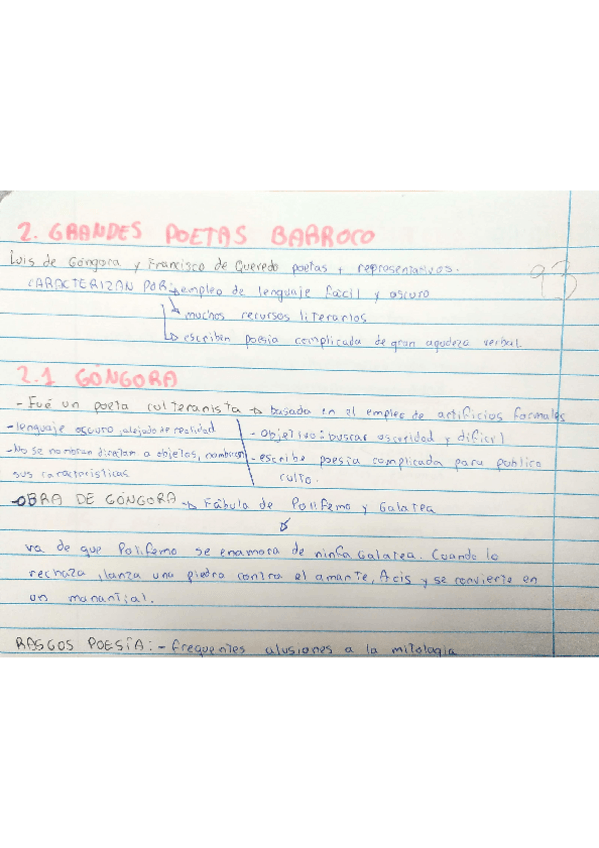 2. GRANDES POETAS BARROCO
Luis de Góngora y Francisco de Quevedo poetas + representativos.
93
CARACTERIZAN POR → empleo de lenguaje fácil y oscuro
→ muchos recursos literarios
→ escribin poesia complicada de gran agudeza verbal.
2.1 GÓNGORA
- Fué un poeta culteranista → basada en el empleo de artificios formales
- lenguaje oscuro, alejado de realidad
- objetivo: buscar oscuridad y dificil
- No se nombran direktam a objetos, nombran
sus caracteristicas
- escribe poesia complicada para público
culto.
- OBRA DE GÓNGORA → Fábula de Polifemo y Galatea
va de que Polifemo se enamora de ninfa Galatea. Cuando lo
rechaza, lanza una piedra contra el amante, Acis y se convierte en
un manantial.
RASGOS POESÍA: - frequentes alusiones a la mitologia